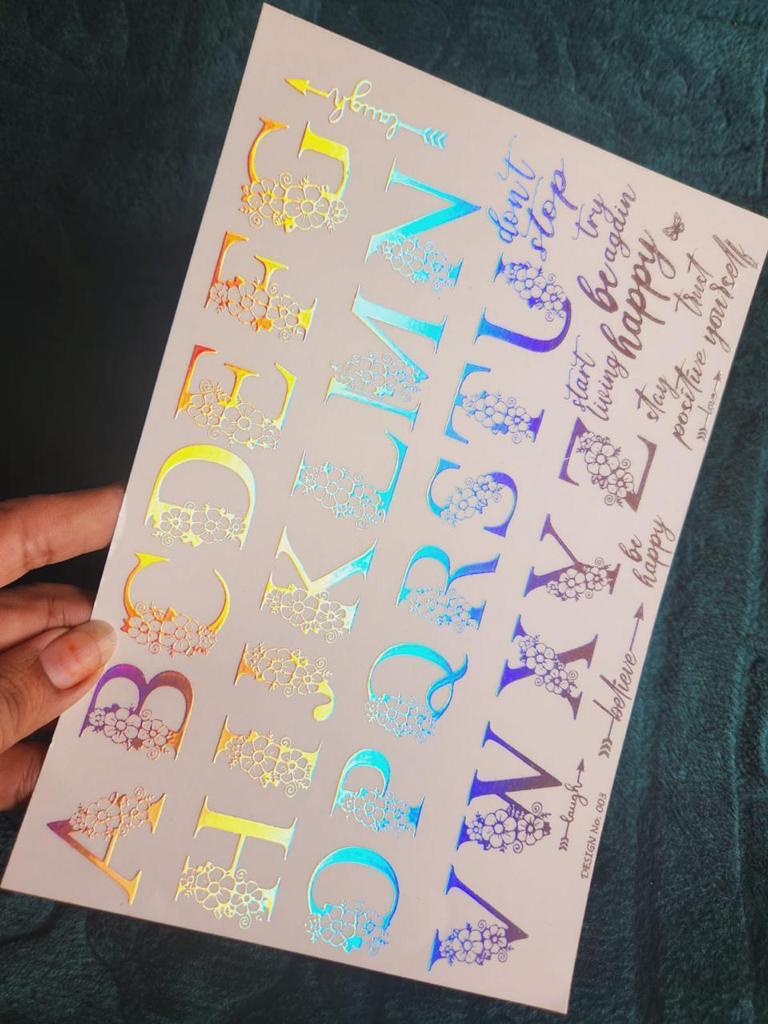 A B C D E F G
laugh
H I J K L M N
O P Q R S T U
don't
stop
V W X Y Z
start
living
be
happy
try
again
stay
positive
trust
yourself
laugh
believe
be
happy
love
DESIGN No. 003